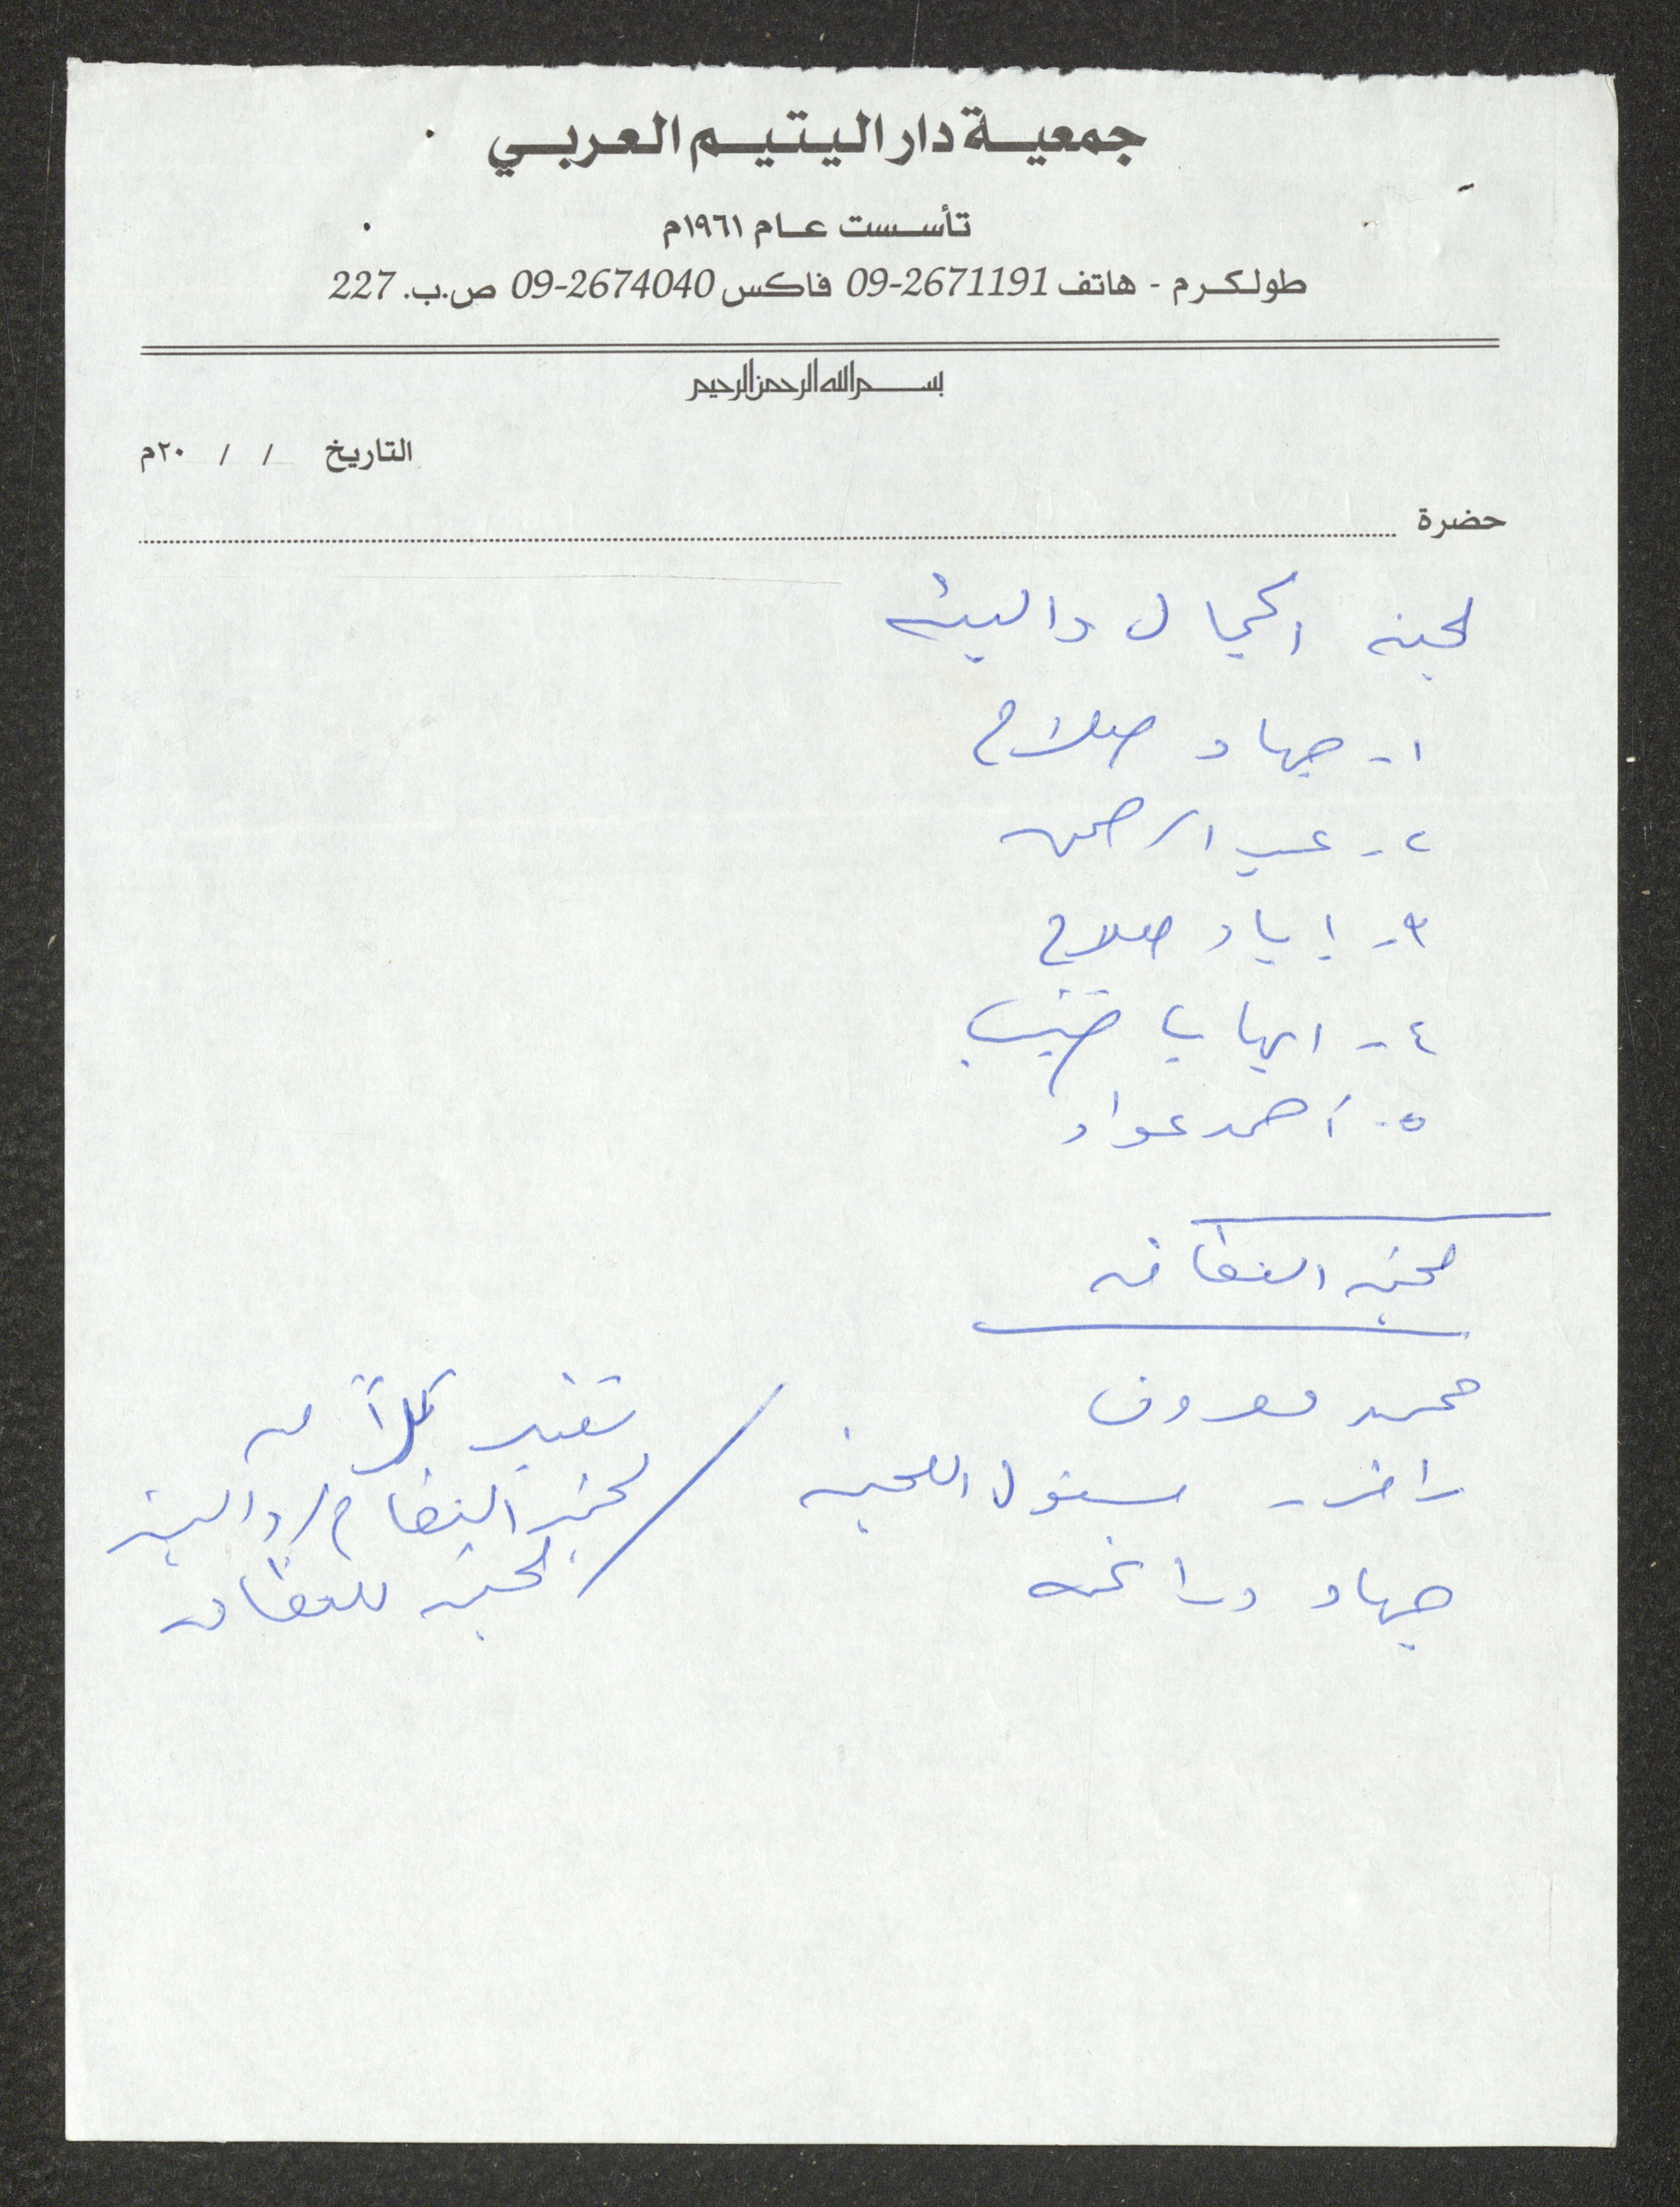 جمعية دار اليتيم العربي
تأسست عام ١٩٦١م
طولكرم - هاتف 09-2671191 فاكس 09-2674040 ص.ب. 227
بسم الله الرحمن الرحيم
التاريخ / / ٢٠م
حضرة
لجنه الجمال والبيئه
١- جهاد صلاح
٢- عبد الرحمن
٣- إياد صلاح
٤- ايهاب
٥- أحمد عواد
لجنه الثقافه
محمد معروف
مسئول اللجنه
جهاد
كلاً من
لجنه النظام / والبيئه
لجنه الثقافه